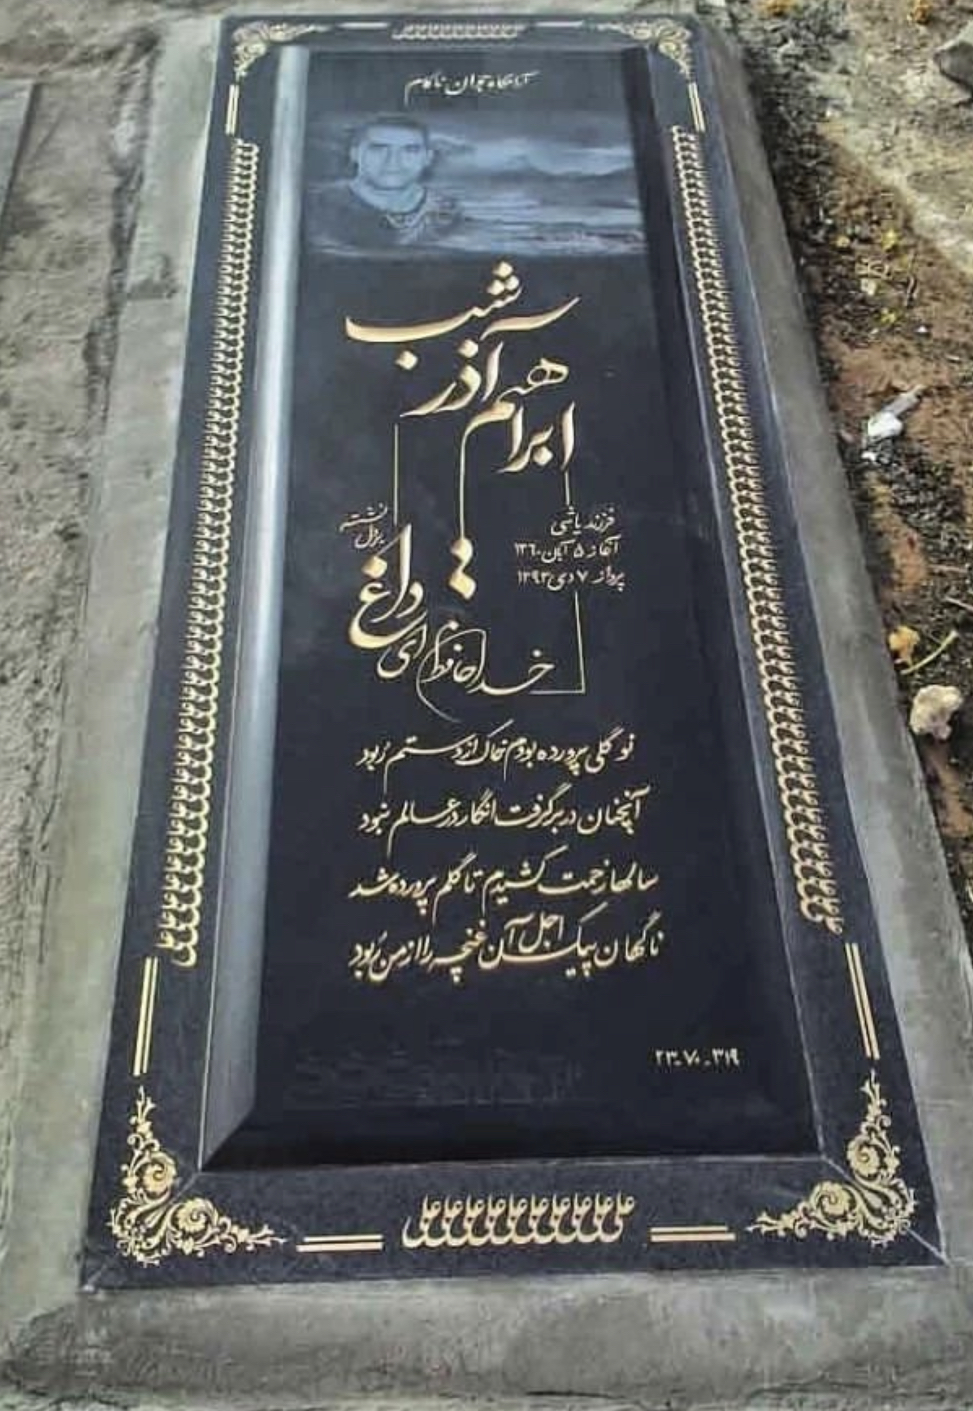 علی علی علی علی علی علی
آرامگاه جوان ناکام
ابراهیم آذرشب
فرزند یاشی
آغاز ۵ آبان ۱۳۶۰
پرواز ۷ دی ۱۳۹۳
خداحافظ ای داغ
بر دل نشسته
نو گلی پرورده بودم خاک از دستم ربود
آنچنان در بر گرفت انگار در عالم نبود
سالها زحمت کشیدم تا گلم پرورده شد
ناگهان پیک اجل آن غنچه را از من ربود
۲۳-۷۰-۳۱۹
علی علی علی علی علی علی علی علی علی علی